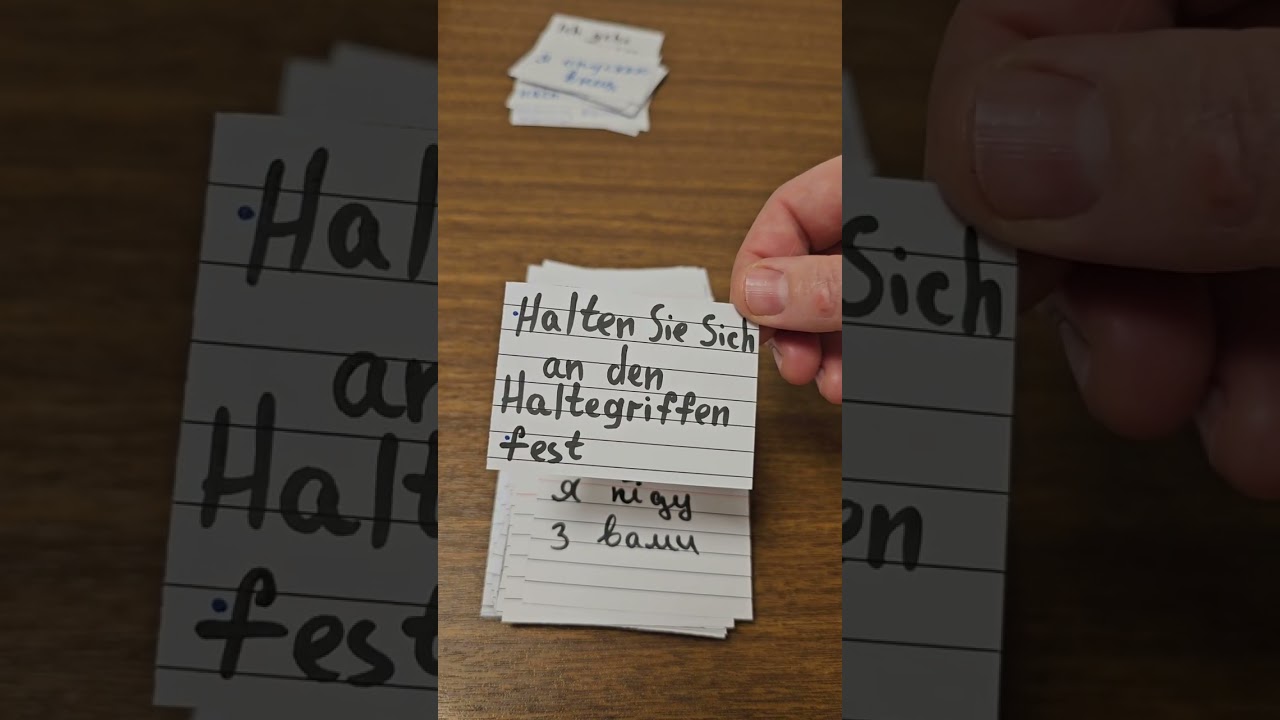 Ich gehe
Halten Sie Sich
an den
Haltegriffen
fest
я піду
з вами